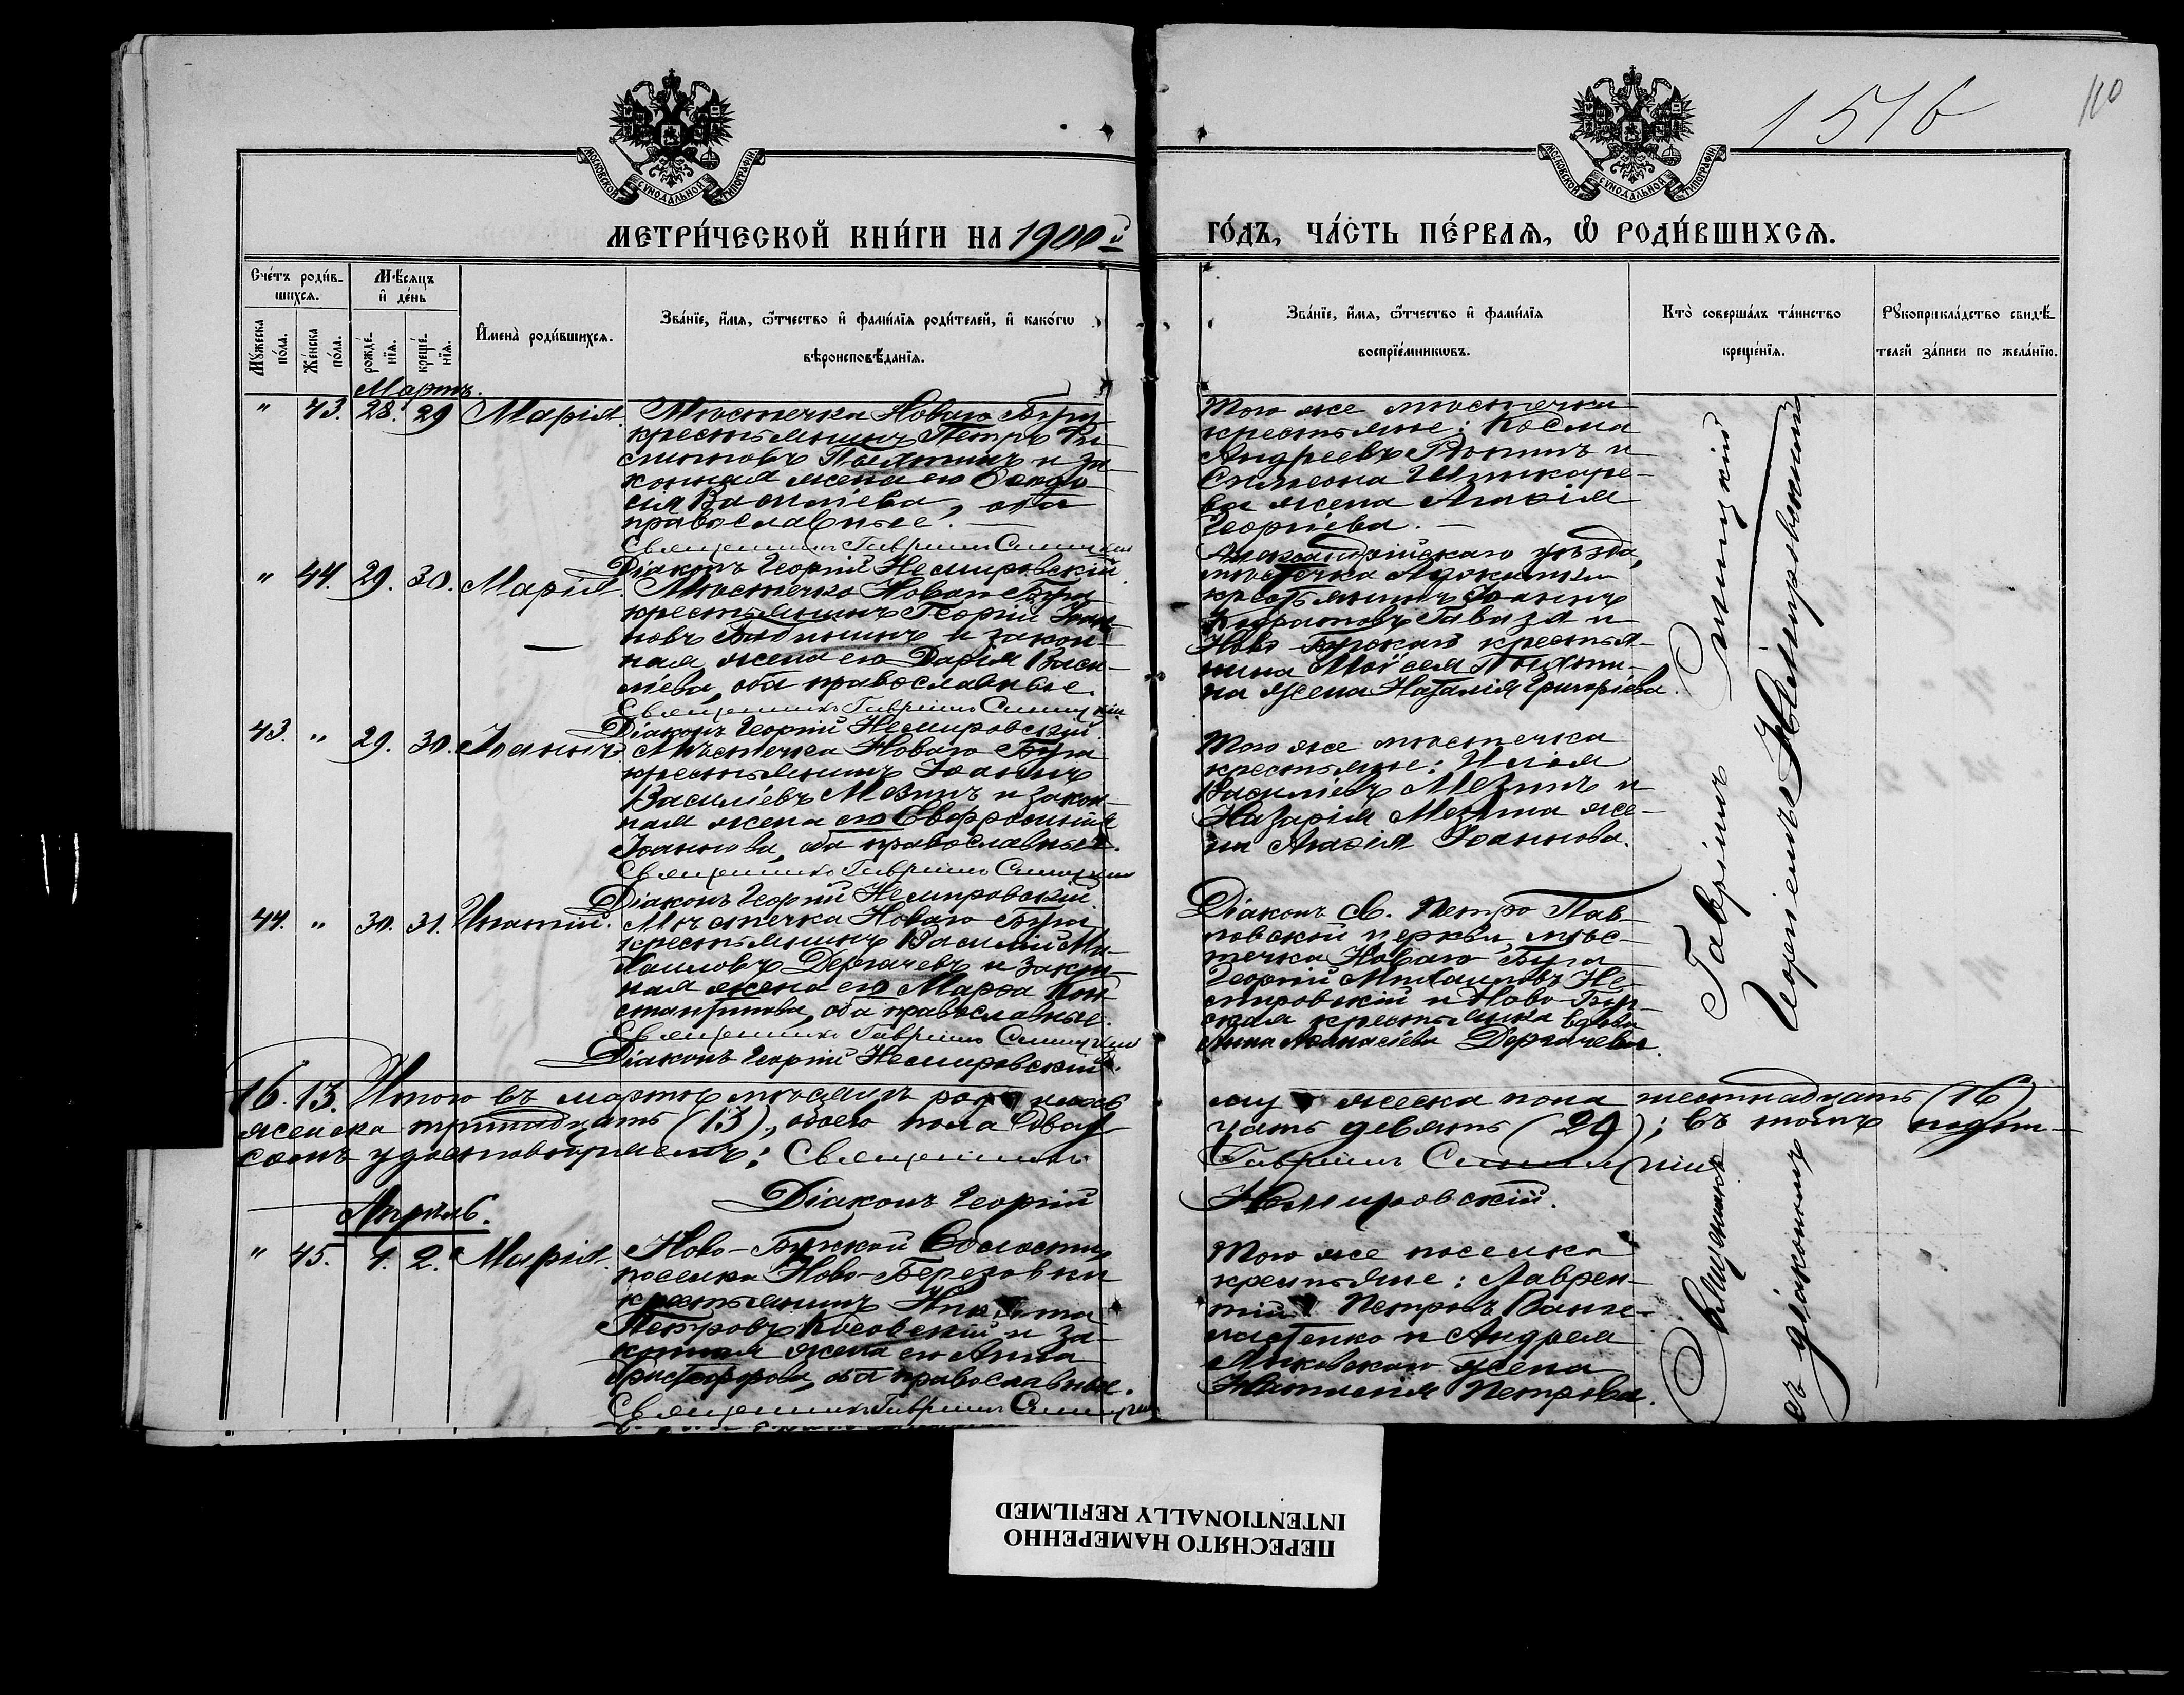 1516
110
МОСКОВСКОЙ СѴНОДАЛЬНОЙ ТИПОГРАФІИ
МОСКОВСКОЙ СѴНОДАЛЬНОЙ ТИПОГРАФІИ
МЕТРИ́ЧЕСКОЙ КНИ́ГИ НА 1900й
ГО́ДЪ, ЧА́СТЬ ПЕ́РВАѦ, Ѡ҆ РОДИ́ВШИХСѦ.
Сче́тъ роди́в-
шихсѧ.
Мѣ́сѧцъ
и҆ де́нь
Мꙋ́жеска
по́ла.
Же́нска
по́ла.
рожде́-
нїѧ.
креще́-
нїѧ.
И҆мена̀ роди́вшихсѧ.
Зва́нїе, и҆́мѧ, ѻ҆́тчество и҆ фамі́лїѧ роди́телей, и҆ како́гѡ
вѣроисповѣ́данїѧ.
Зва́нїе, и҆́мѧ, ѻ҆́тчество и҆ фамі́лїѧ
воспрїе́мникѡвъ.
Кто̀ соверша́лъ та́инство
креще́нїѧ.
Рꙋкоприкла́дство свидѣ́-
телей за́писи по жела́нїю.
Мартъ.
" 43. 28. 29 Марія. Мѣстечка Новаго Буга
крестьянинъ Петръ
и за
конная жена его Евдо
кія Василіева, оба
православные.
Священникъ Гавріилъ Синицкій
Діаконъ Георгій Немировскій
Того же мѣстечка
крестьяне: Косма
Андреевъ и
Симеона
ва жена Агафія
Георгіева.
" 44. 29. 30. Марія. Мѣстечка Новаго Буга
крестьянинъ Георгій Іоан-
новъ и закон-
ная жена его Дарія Васи-
ліева, оба православные.
Священникъ Гавріилъ Синицкій
Діаконъ Георгій Немировскій
Александрійскаго уѣзда,
мѣстечка
крестьянинъ Іоаннъ
Ново-Бугскаго крестья-
нина Моисея
на жена Наталія Григоріева.
43. " 29. 30. Іоаннъ. Мѣстечка Новаго Буга
крестьянинъ Іоаннъ
Василіевъ Мезинъ и закон-
ная жена его Евфросинія
Іоаннова, оба православные.
Священникъ Гавріилъ Синицкій
Діаконъ Георгій Немировскій
Того же мѣстечка
крестьяне: Илія
Василіевъ Мезинъ и
Назарія Мезина же-
на Агафія Іоаннова.
44. " 30. 31. Ипатій. Мѣстечка Новаго Буга
крестьянинъ Василій Ми-
хаиловъ Дергачевъ и закон-
ная жена его Марфа Кон-
стантинова, оба православные.
Священникъ Гавріилъ Синицкій
Діаконъ Георгій Немировскій.
Діаконъ Св. Петро-Пав-
ловской церкви мѣс-
течка Новаго Буга
Георгій Михаиловъ Не-
мировскій и Ново-Буг-
ская крестьянка вдова
Анна Аѳанасіева Дергачева.
16. 13. Итого въ мартѣ мѣсяцѣ родилось
мужеска пола шестнадцать (16)
женска тринадцать (13), обоего пола двад-
цать девять (29); въ томъ подпи-
семъ удостовѣряемъ: Священникъ
Гавріилъ Синицкій
Діаконъ Георгій
Немировскій.
Апрѣль.
" 45. 1. 2. Марія. Ново-Бугской волости,
поселка Ново-Березовки
крестьянинъ Никита
Петровъ Косовскій и за-
конная жена его Анна
Христофорова, оба православные.
Священникъ Гавріилъ Синицкій
Того же поселка
крестьяне: Лаврен-
тій Петровъ
и Андрея
жена
Наталія Петрова.
Священникъ Гавріилъ Синицкій
съ діакономъ Георгіемъ Немировскимъ
ПЕРЕСНЯТО НАМЕРЕННО
INTENTIONALLY REFILMED